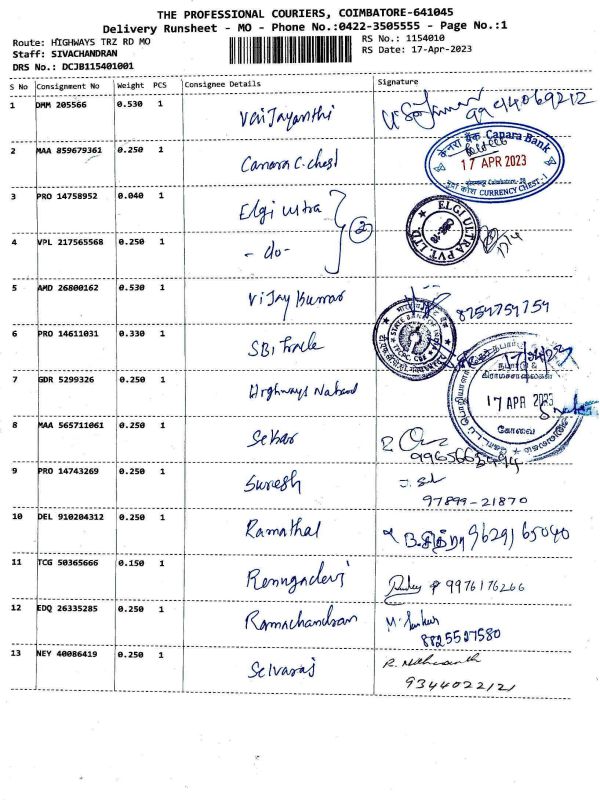 THE PROFESSIONAL COURIERS, COIMBATORE-641045
Delivery Runsheet - MO - Phone No.:0422-3505555 - Page No.:1
Route: HIGHWAYS TRZ RD MO
RS No.: 1154010
Staff: SIVACHANDRAN
RS Date: 17-Apr-2023
DRS No.: DCJB115401001
S No Consignment No Weight PCS Consignee Details Signature
1 DMM 205566 0.530 1 Vaijayanthi 9944069212
2 MAA 859679361 0.250 1 Canara C. Chest
केनरा बैंक Canara Bank
17 APR 2023
CURRENCY CHEST - 1
3 PRO 14758952 0.040 1 Elgi Ultra
2
ELGI ULTRA PVT. LTD.
4 VPL 217565568 0.250 1 - do -
5 AMD 26800162 0.530 1 Vijay Kumar 8754754754
6 PRO 14611031 0.330 1 SBI Trade
STATE BANK OF INDIA
17/04/23
7 GDR 5299326 0.250 1 Highways
17 APR 2023
கோவை
8 MAA 565711061 0.250 1 Sekar
9965665494
9 PRO 14743269 0.250 1 Suresh
97899-21870
10 DEL 910204312 0.250 1 Ramathal 9629165040
11 TCG 50365666 0.150 1 Rengadevi 9976176266
12 EDQ 26335285 0.250 1 Ramachandran
8825527580
13 NEY 40086419 0.250 1 Selvaraj
9344022121